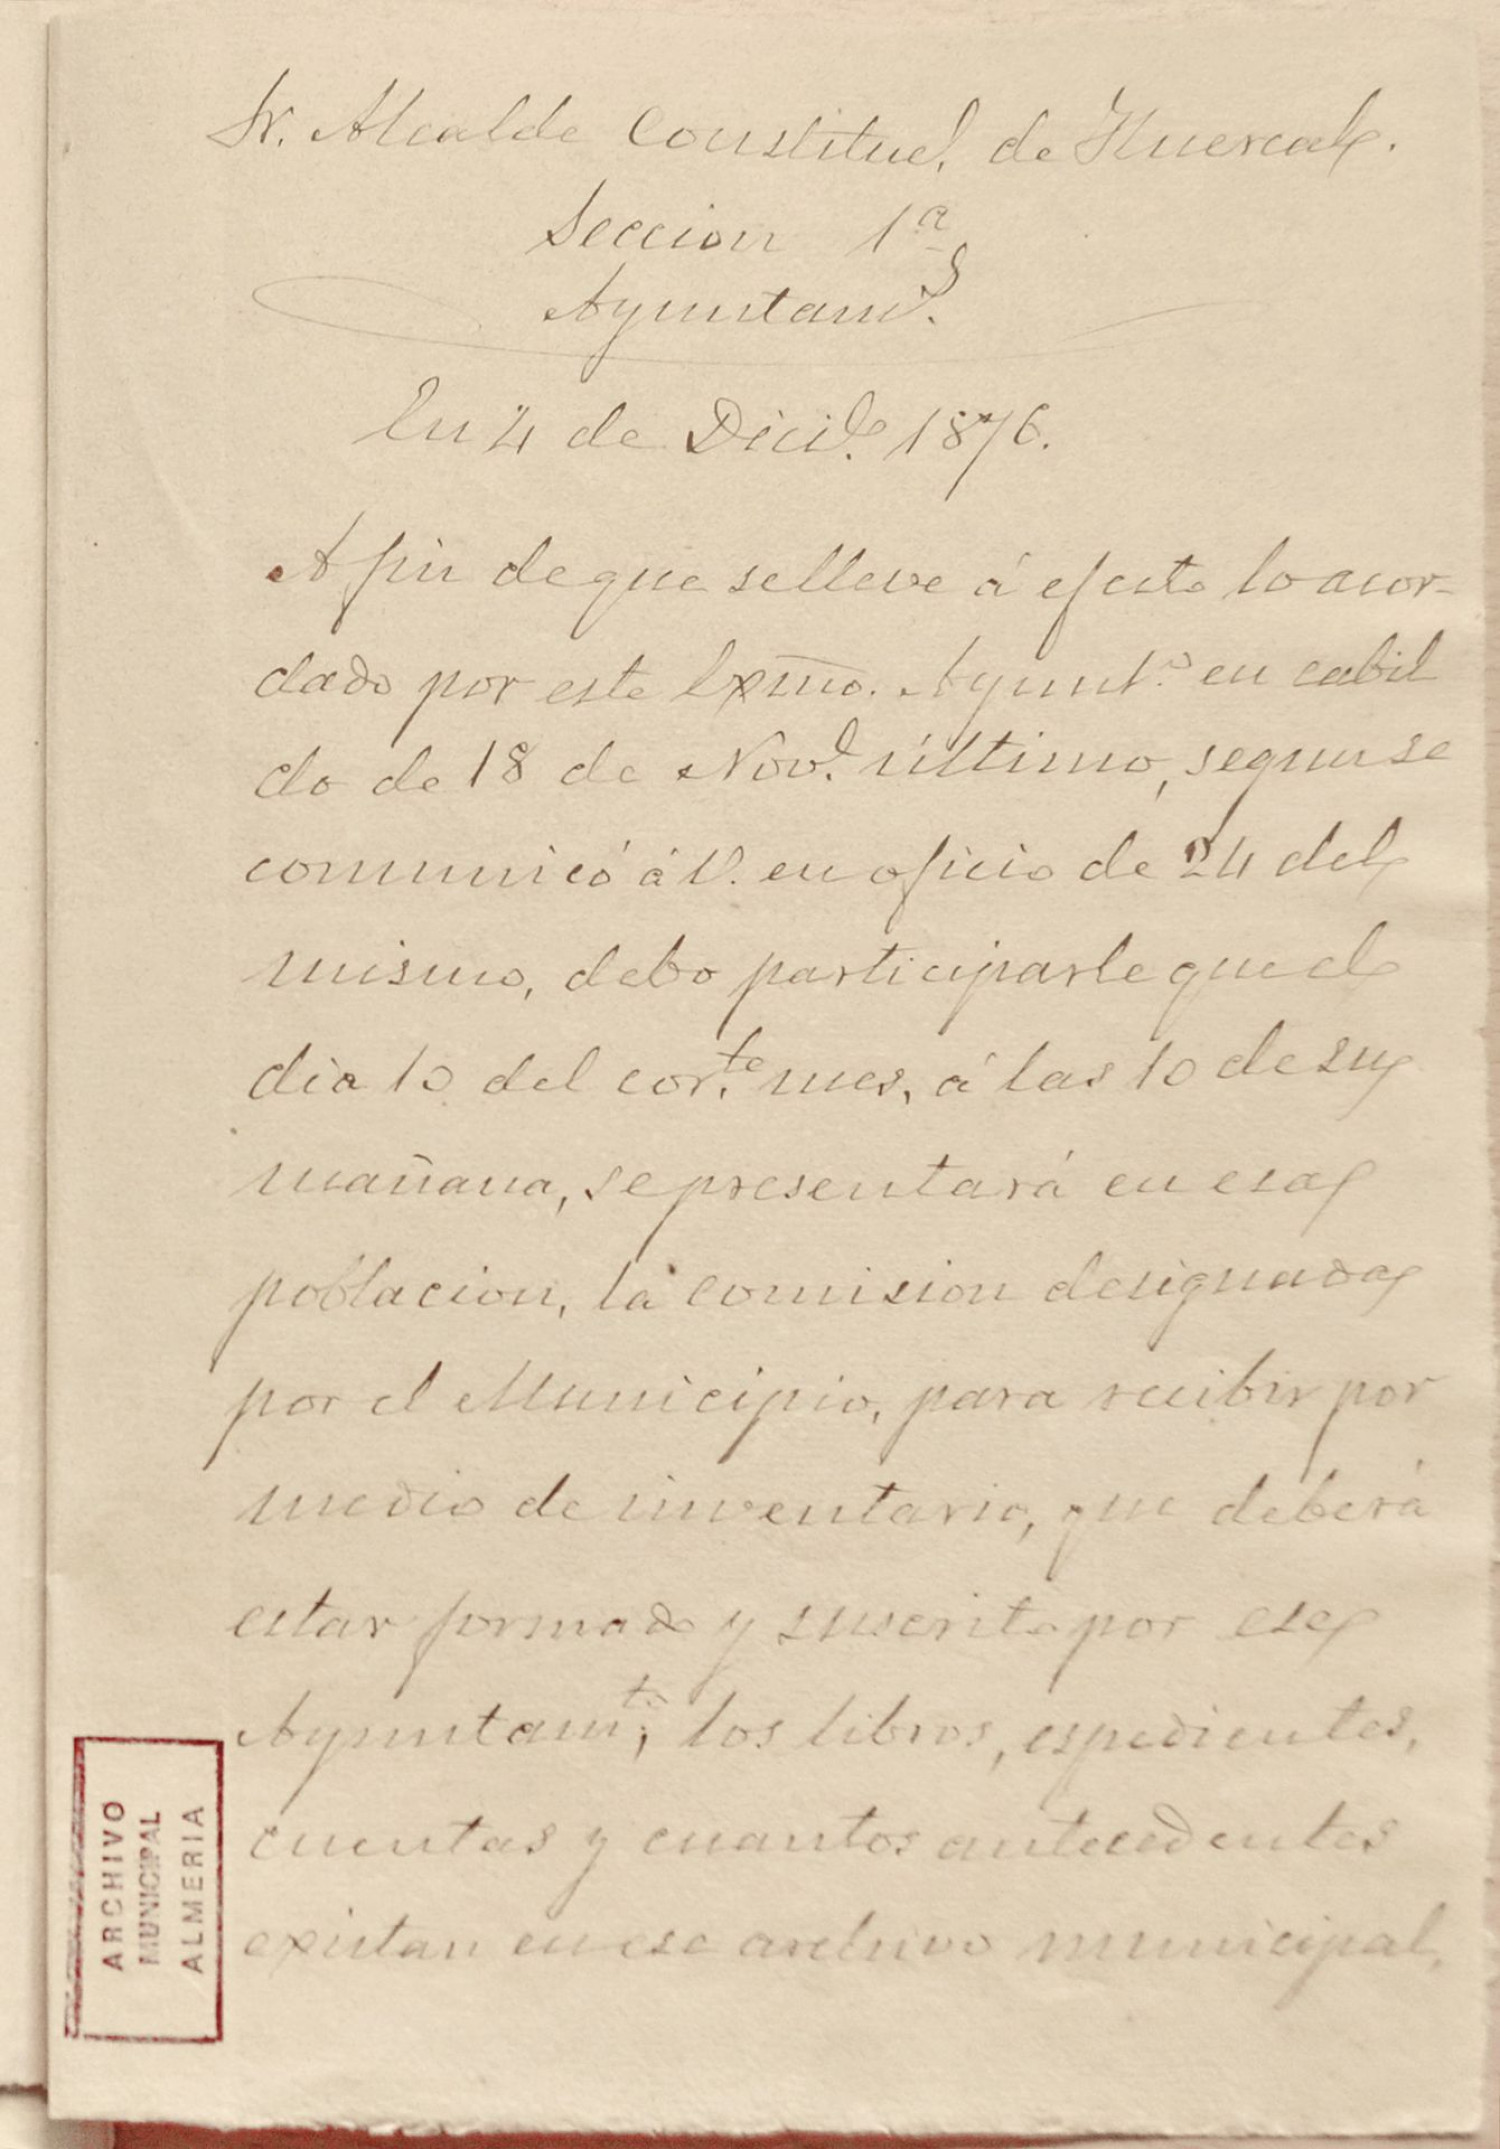 Sr. Alcalde Constituel. de Huercal.
Seccion 1ª
Ayuntams.
En 4 de Dicie. 1876.
A fin de que se lleve á efecto lo acor-
dado por este Exmo. Ayunto. en cabil
do de 18 de Nove. último, segun se
comunicó á V. en oficio de 24 del
mismo, debo participarle que el
dia 10 del corte. mes, á las 10 de su
mañana, se presentará en esa
poblacion, la comision designada
por el Municipio, para recibir por
medio de inventario, que deberá
estar formado y suscrito por ese
Ayuntamto; los libros, espedientes,
cuentas y cuantos antecedentes
existan en ese archivo municipal,
ARCHIVO
MUNICIPAL
ALMERIA